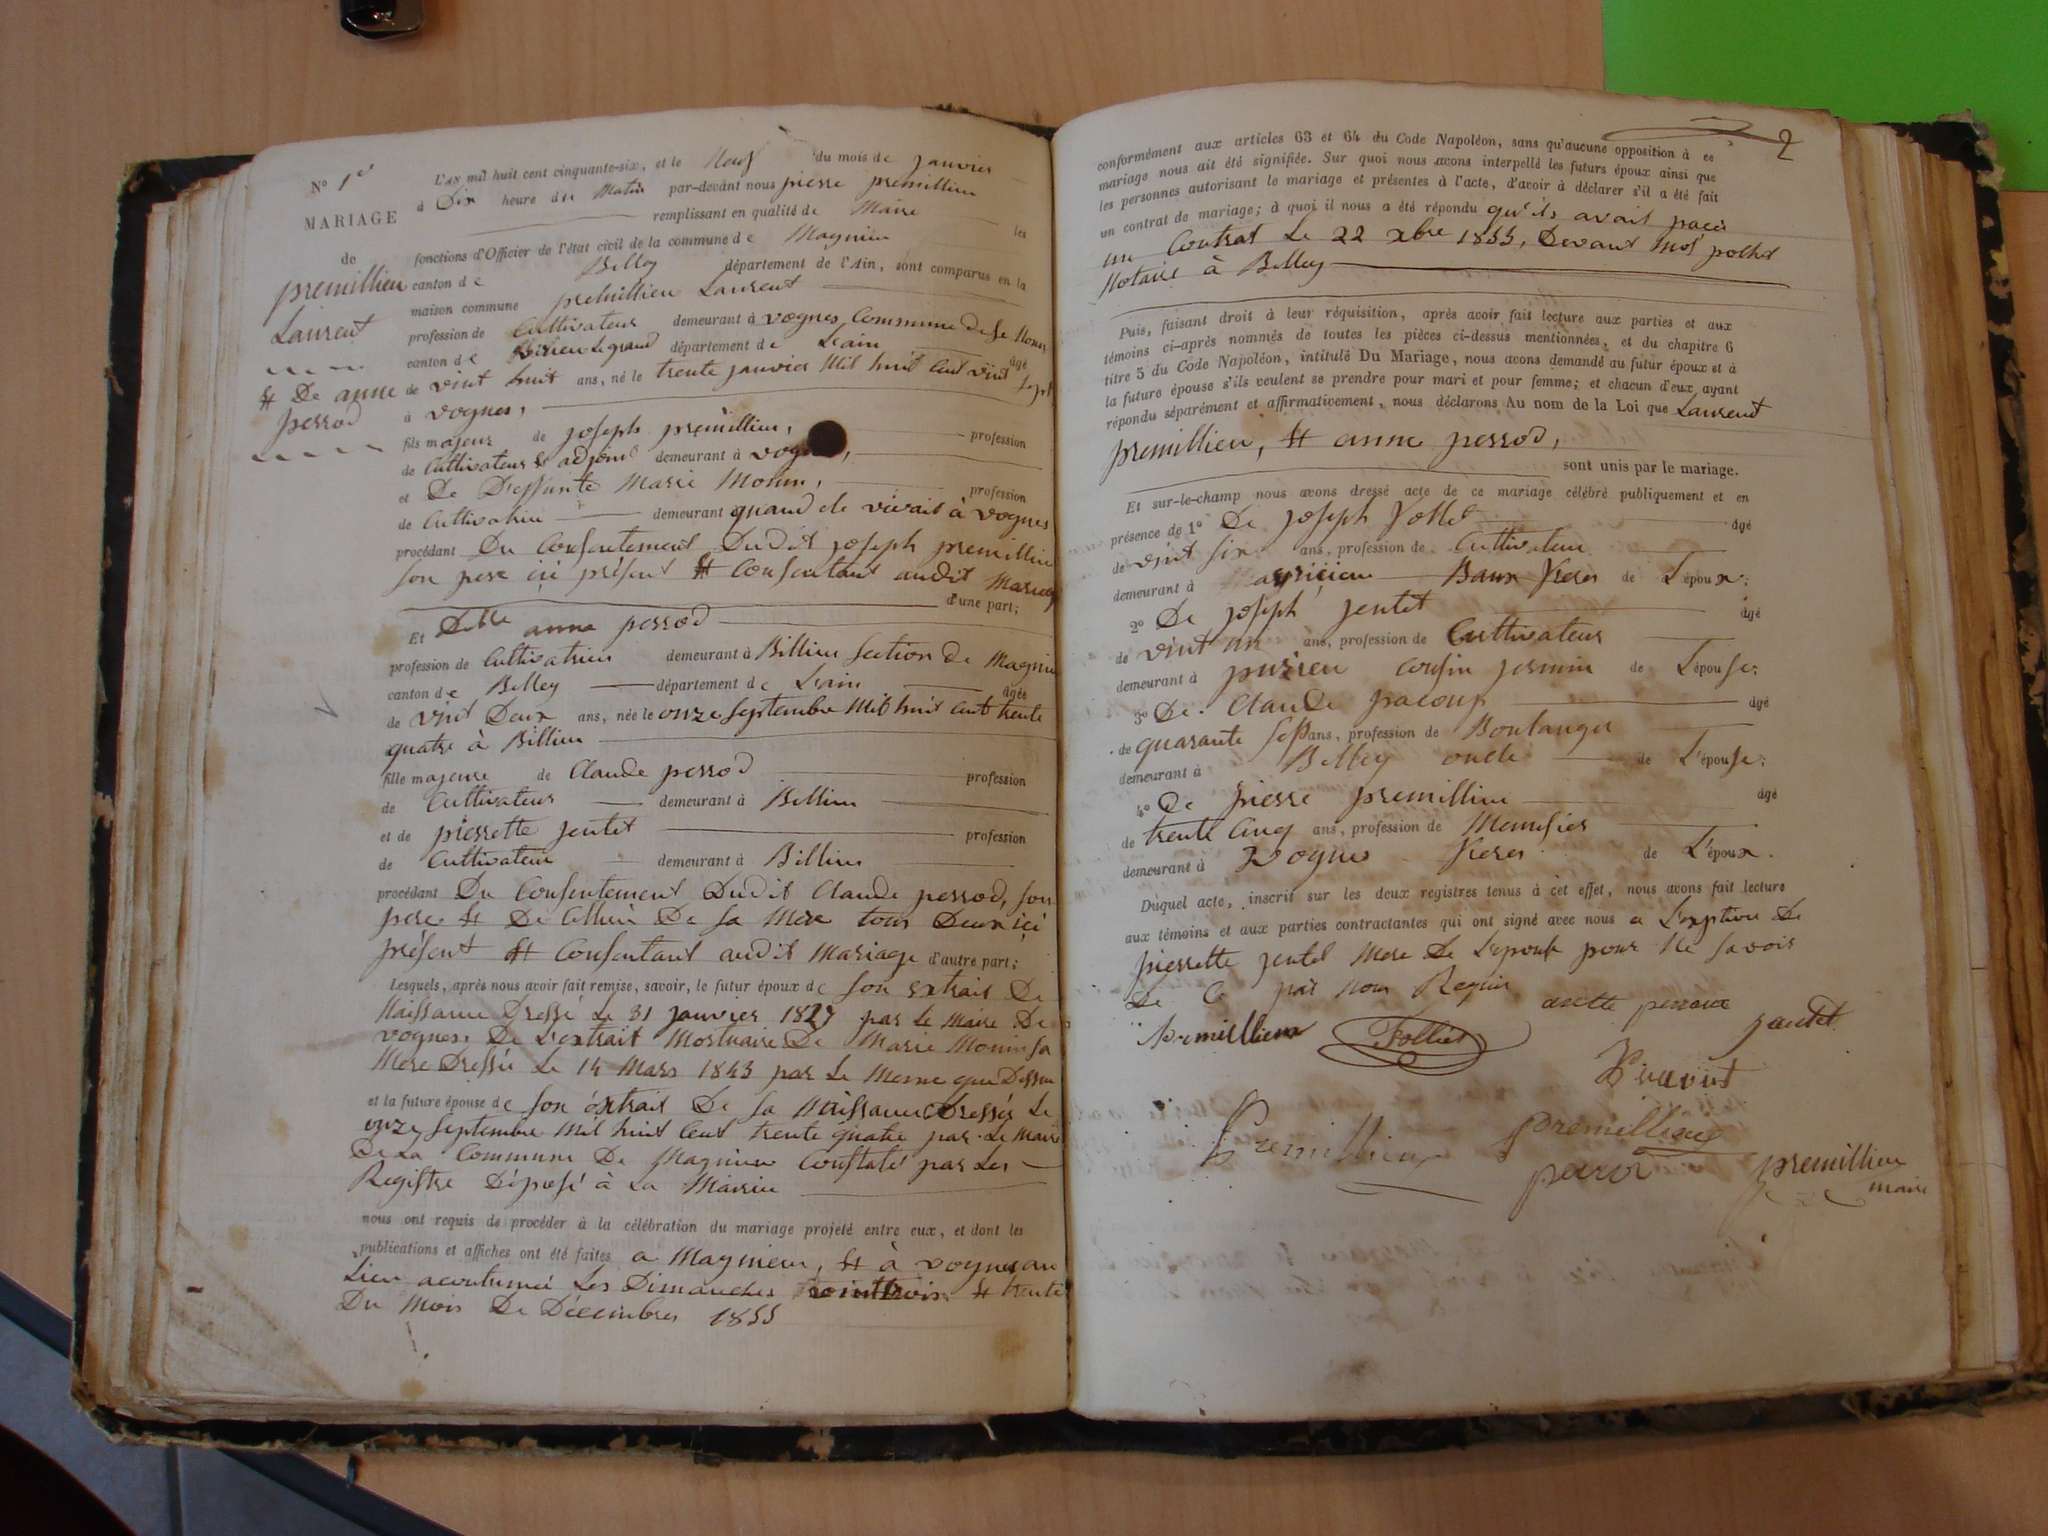 N° 1er
MARIAGE
de
premillieu
Laurent
& De anne
perrod
L'an mil huit cent cinquante-six, et le Neuf du mois de janvier
à Dix heure du Matin par-devant nous pierre premillieu
remplissant en qualité de Maire les
fonctions d'Officier de l'état civil de la commune de Magnieu
canton de Belley département de l'Ain, sont comparus en la
maison commune premillieu Laurent
profession de Cultivateur demeurant à vognes Commune de
canton de Virieu Le grand département de Lain âgé
de vint huit ans, né le trente janvier Mil huit Cent vint sept
à vognes,
fils majeur de joseph premillieu, profession
de Cultivateur & adjoint demeurant à vognes,
et De Deffunte Marie Monin, profession
de Cultivatrice demeurant quand ele vivait à vognes
procédant Du Consentement Dudit joseph premillieu
son pere ici présent & Consentant audit Mariage
d'une part;
Et Delle anne perrod
profession de Cultivatrice demeurant à Billieu section de Magnieu
canton de Belley département de Lain âgée
de vint Deux ans, née le onze septembre Mil huit cent trente
quatre à Billieu
fille majeure de Claude perrod profession
de Cultivateur demeurant à Billieu
et de pierrette jentet profession
de Cultivateur demeurant à Billieu
procédant Du Consentement Dudit Claude perrod, son
pere & De Celluì De sa Mere tous Deux ici
présent & Consentant audit Mariage d'autre part;
Lesquels, après nous avoir fait remise, savoir, le futur époux de son extrait De
Naissance Dressé Le 31 janvier 1827 par Le Maire De
vognes. De L'extrait Mortuaire De Marie Monin sa
Mere Dressée Le 14 Mars 1843 par Le Meme que Dessu
et la future épouse de son éxtrait De sa Naissance Dressée Le
onze septembre Mil huit Cent trente quatre par Le Maire
De La Commune De Magnieu Constaté par Les
Registre Déposé à La Mairie
nous ont requis de procéder à la célébration du mariage projeté entre eux, et dont les
publications et affiches ont été faites a Magnieu, & à vognes au
Lieu acoutumée Les Dimanches vointtrois & trente
Du Mois De Décembres 1855
2
conformément aux articles 63 et 64 du Code Napoléon, sans qu'aucune opposition à ce
mariage nous ait été signifiée. Sur quoi nous avons interpellé les futurs époux ainsi que
les personnes autorisant le mariage et présentes à l'acte, d'avoir à déclarer s'il a été fait
un contrat de mariage; à quoi il nous a été répondu qu'ils avait pacés
un Contrat Le 22 xbre 1855, Devant
Notaire à Belley
Puis, faisant droit à leur réquisition, après avoir fait lecture aux parties et aux
témoins ci-après nommés de toutes les pièces ci-dessus mentionnées, et du chapitre 6
titre 5 du Code Napoléon, intitulé Du Mariage, nous avons demandé au futur époux et à
la future épouse s'ils veulent se prendre pour mari et pour femme; et chacun d'eux ayant
répondu séparément et affirmativement, nous déclarons Au nom de la Loi que Laurent
premillieu, & anne perrod,
sont unis par le mariage.
Et sur-le-champ nous avons dressé acte de ce mariage célébré publiquement et en
présence de 1° De joseph follet âgé
de vint six ans, profession de Cultivateur
demeurant à Magnieu Baux freres de L'époux;
2° De joseph jentet âgé
de vint un ans, profession de Cultivateur
demeurant à pusieu cousin jermin de L'épouse;
3° De Claude jacoup âgé
de quarante sept ans, profession de Boulanger
demeurant à Belley oncle de L'épouse;
4° De pierre premillieu âgé
de trente Cinq ans, profession de Menusier
demeurant à vognes freres de L'époux.
Duquel acte, inscrit sur les deux registres tenus à cet effet, nous avons fait lecture
aux témoins et aux parties contractantes qui ont signé avec nous a L'exption De
pierrette jentet Mere De L'epouse pour Ne savoir
De Ce par Nous Requis
anette perroux
jeantet
premillieux
Follict
premillieux
premillieu
perrod
premillieu
maire